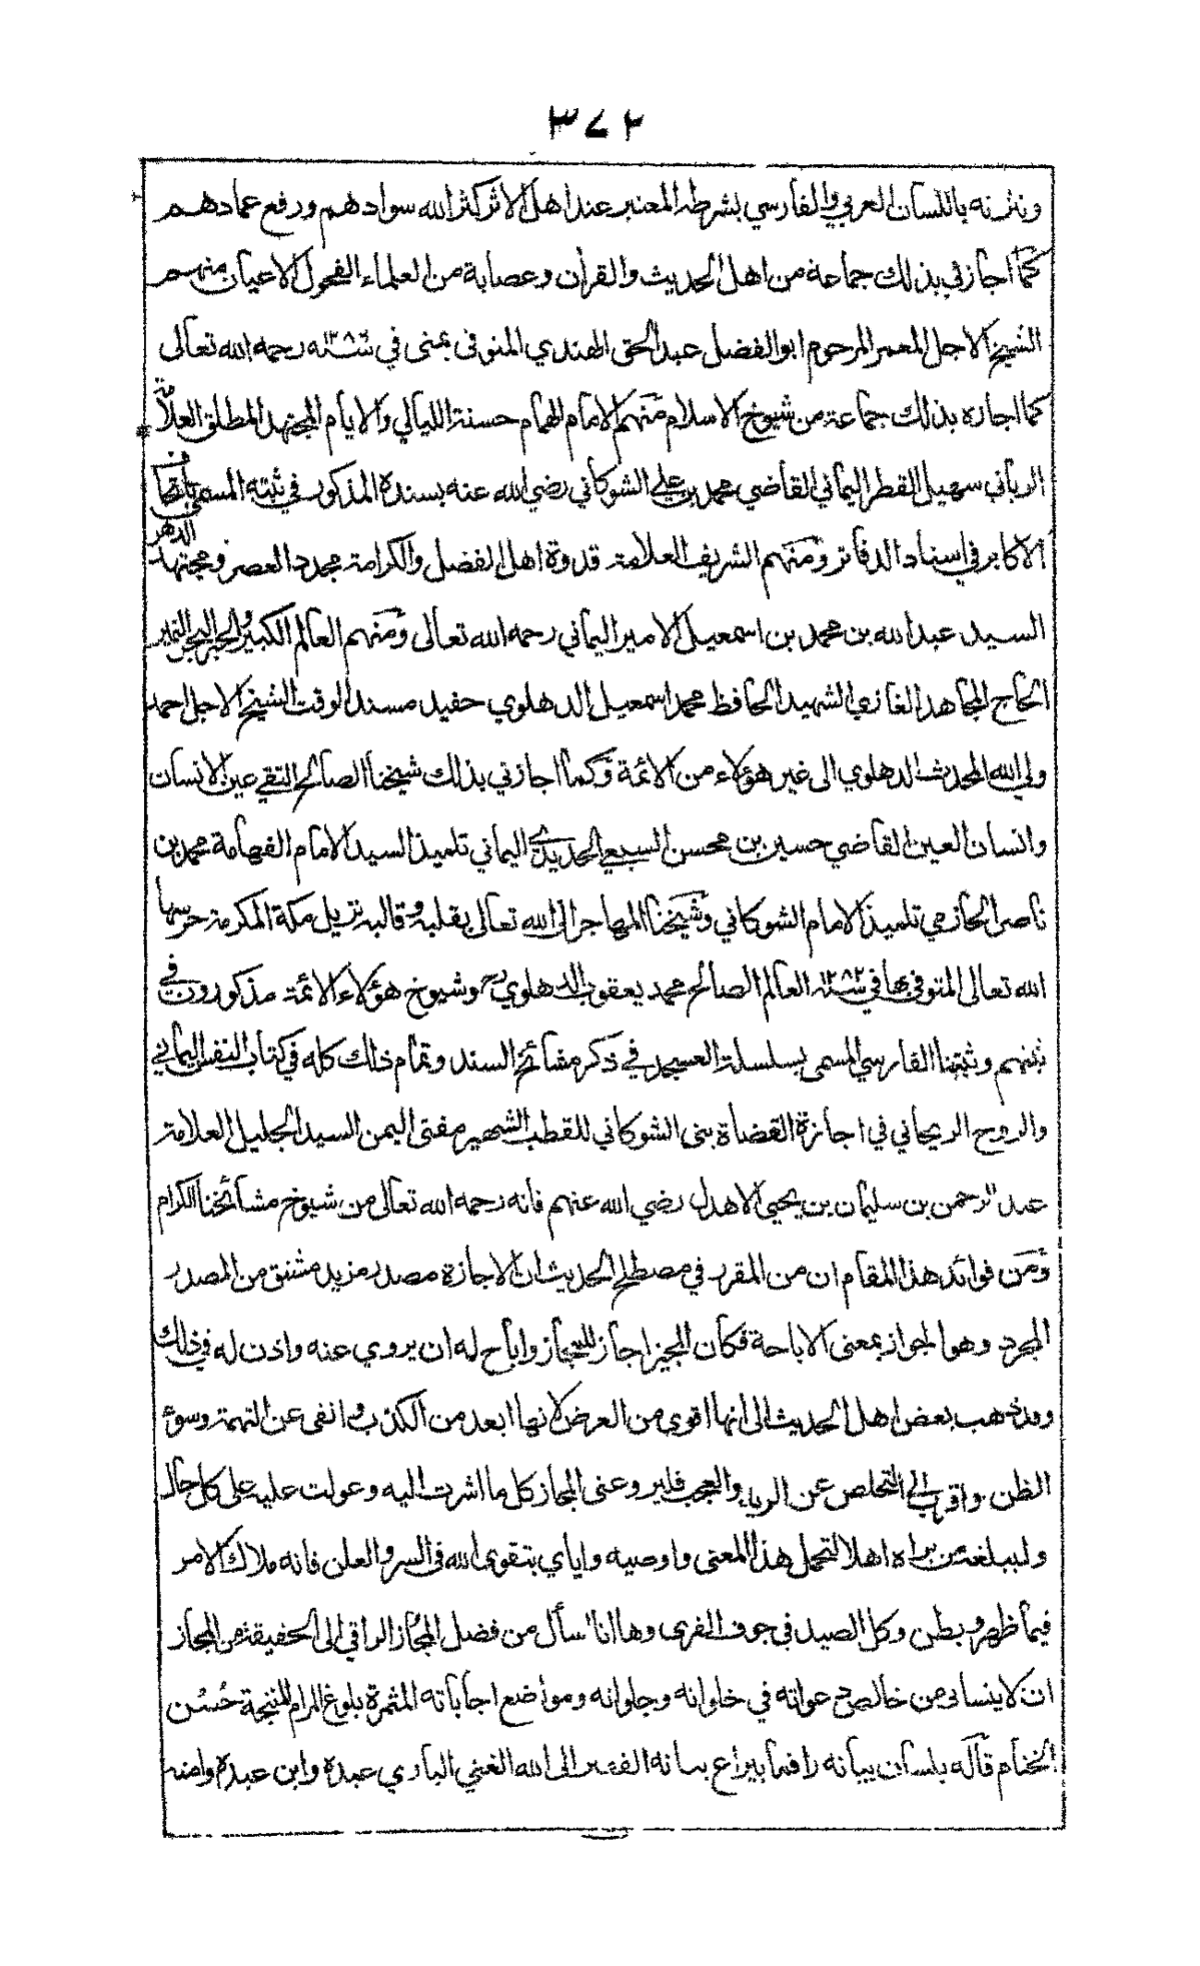 ٣٧٢
ونثرنه باللسان العربي والفارسي بشرطه المعتبر عند اهل الاثر كثر الله سوادهم ورفع عمادهم
كما اجازني بذلك جماعة من اهل الحديث والقران وعصابة من العلماء الفحول الاعيان منهم
الشيخ الاجل المعمر المرحوم ابو الفضل عبد الحق الهندي المتوفى بمنى في سنة ١٢٨٦ رحمه الله تعالى
كما اجازه بذلك جماعة من شيوخ الاسلام منهم الامام الهمام حسنة الليالي والايام المجتهد المطلق العلامة
الرباني سهيل القطر اليماني القاضي محمد بن علي الشوكاني رضي الله عنه بسنده المذكور في ثبته المسمى باتحاف
الاكابر في اسناد الدفاتر ومنهم الشريف العلامة قدوة اهل الفضل والكرامة مجدد العصر ومجتهد الدهر
السيد عبد الله بن محمد بن اسمعيل الامير اليماني رحمه الله تعالى ومنهم العالم الكبير والحبر البحر النمير
الحاج المجاهد الغازي الشهيد الحافظ محمد اسمعيل الدهلوي حفيد مسند الوقت الشيخ الاجل احمد
ولي الله المحدث الدهلوي الى غير هؤلاء من الائمة وكما اجازني بذلك شيخنا الصالح التقي عين الانسان
وانسان العين القاضي حسين بن محسن السبعي الحديدي اليماني تلميذ السيد الامام الفهامة محمد بن
ناصر الحازمي تلميذ الامام الشوكاني وشيخنا المهاجر الى الله تعالى بقلبه وقالبه نزيل مكة المكرمة حرسها
الله تعالى المتوفى بها في سنة ١٢٨٢ العالم الصالح محمد يعقوب الدهلوي رح وشيوخ هؤلاء الائمة مذكورون في
ثبتهم وثبتنا الفارسي المسمى بسلسلة العسجد في ذكر مشائخ السند وتمام ذلك كله في كتاب النفس اليماني
والروح الريحاني في اجازة القضاة بنى الشوكاني للقطب الشهير مفتى اليمن السيد الجليل العلامة
عبد الرحمن بن سليمان بن يحيى الاهدل رضي الله عنهم فانه رحمه الله تعالى من شيوخ مشائخنا الكرام
ومن فوائد هذا المقام ان من المقرر في مصطلح الحديث ان الاجازة مصدر مزيد مشتق من المصدر
المجرد وهو الجواز بمعنى الاباحة فكان المجيز اجاز للمجاز واباح له ان يروي عنه واذن له في ذلك
وقد ذهب بعض اهل الحديث الى انها اقوى من العرض لانها ابعد من الكذب وانفى عن التهمة وسوء
الظن واقرب الى التخلص عن الرياء والعجب فليرو عنى المجاز كل ما اشرت اليه وعولت عليه على كل حال
وليبلغه من يراه اهلا لتحمل هذا المعنى واوصيه واياي بتقوى الله في السر والعلن فانه ملاك الامر
فيما ظهر وبطن وكل الصيد في جوف الفرى وها انا اسأل من فضل المجاز الراقي الى الحقيقة من المجاز
ان لا ينسانى من خالص دعواته في خلواته وجلواته ومواضع اجاباته المثمرة بلوغ المرام المنتجة حسن
الختام قاله بلسان بيانه راقما بيراع بنانه الفقير الى الله الغني الباري عبده وابن عبده وامته